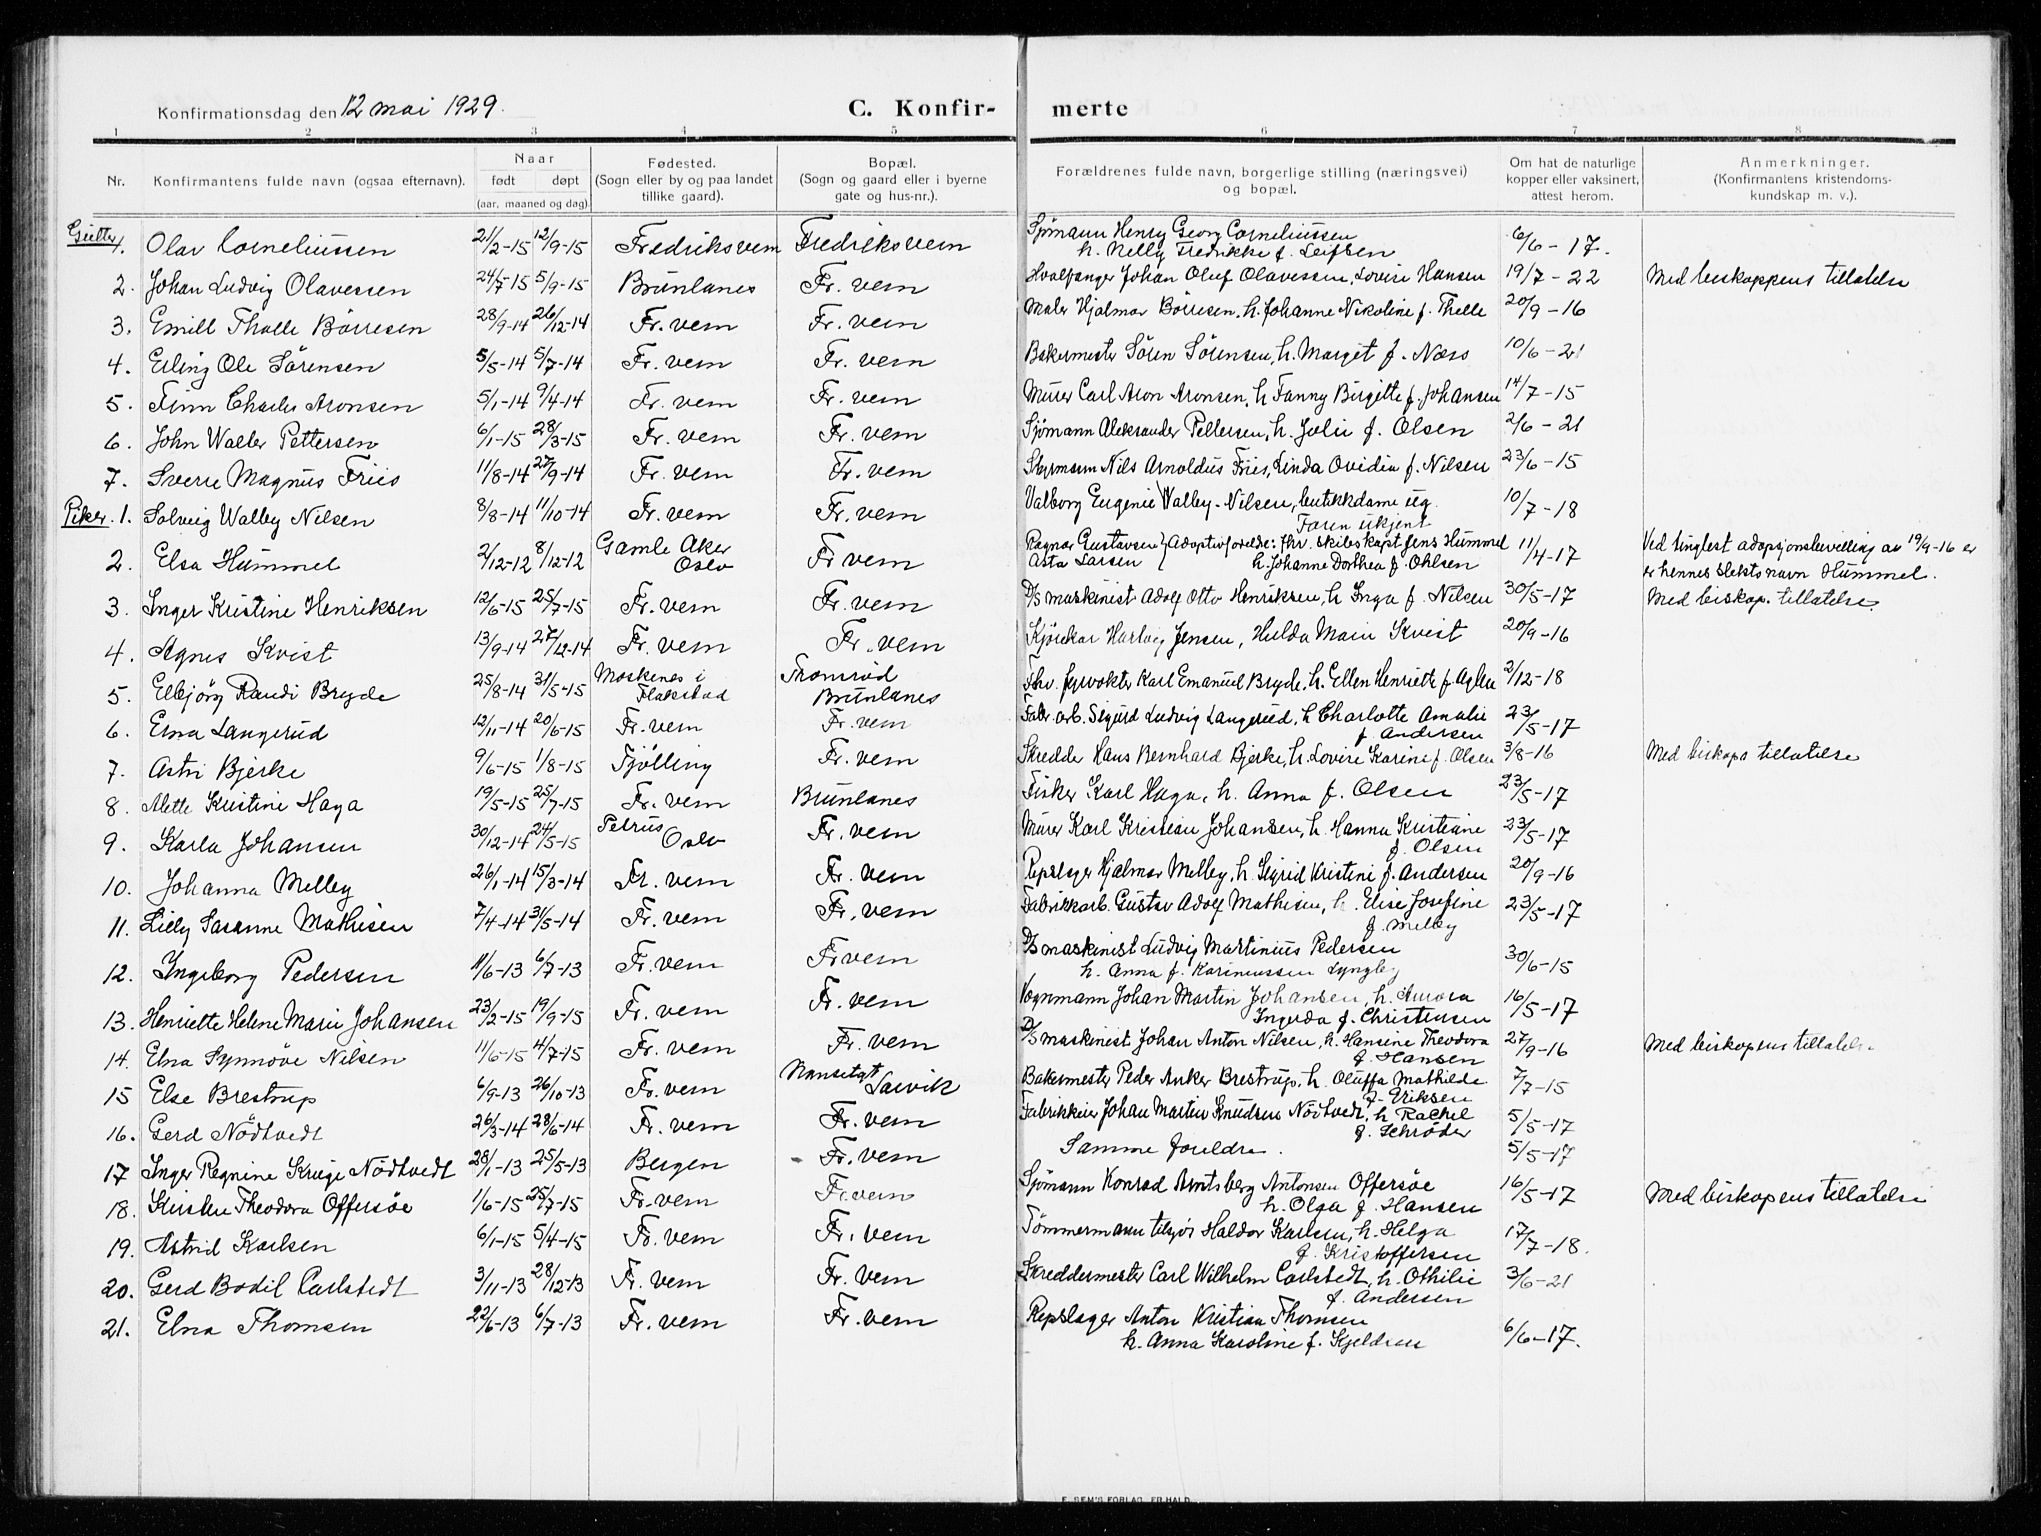 Konfirmationsdag den 12 mai 1929. C. Konfir- merte
1 2 3 4 5 6 7 8
Nr. Konfirmantens fulde navn (ogsaa efternavn). Naar født døpt (aar, maaned og dag). Fødested. (Sogn eller by og paa landet tillike gaard). Bopæl. (Sogn og gaard eller i byerne gate og hus-nr.). Forældrenes fulde navn, borgerlige stilling (næringsvei) og bopæl. Om hat de naturlige kopper eller vaksinert, attest herom. Anmerkninger. (Konfirmantens kristendoms- kundskap m. v.).
Gutter
1. Olav Corneliussen 21/2-15 12/9-15 Fredriksvern Fredriksvern Sjømann Henry Georg Corneliussen 6/6-17.
h. Nelly Fredrikke f.
2. Johan Ludvig Olavessen 24/7-15 5/9-15 Brunlanes Fr. vern Hvalfanger Johan Oluf Olavessen, Lovise Hansen 19/7-22 Med biskoppens tillatelse
3. Emill Thelle Börresen 28/9-14 26/12-14 Fr. vern Fr. vern Maler Hjalmar Börresen, h. Johanne Nikoline f. Thelle 20/9-16
4. Erling Ole Sörensen 5/5-14 5/7-14 Fr. vern Fr. vern Bakermester Sören Sörensen, h. Margit f. Næss 10/6-21
5. Finn Charles Aronsen 5/1-14 9/4-14 Fr. vern Fr. vern Murer Carl Aron Aronsen, h. Fanny Birgitte f. Johansen 14/7-15
6. John Walter Pettersen 6/1-15 28/3-15 Fr. vern Fr. vern Sjømann Aleksander Pettersen, h. Julie f. Olsen 2/6-21
7. Sverre Magnus Friis 11/8-14 27/9-14 Fr. vern Fr. vern Styrmann Nils Arnoldus Friis, Linda Ovidia f. Nilsen 23/6-15
Piker. 1. Solveig Walby Nilsen 8/8-14 11/10-14 Fr. vern Fr. vern Valborg Eugenie Walby-Nilsen, butikkdame ug. 10/7-18
Faren ukjent
2. Elsa Hummel 2/12-12 8/12-12 Gamle Aker Oslo Fr vern Ragnar Gustavsen Asta Larsen } Adoptivforeldre: fhv. skibskapt Jens Hummel 11/4-17 Ved tinglest adopsjonsbevilling av 19/9-16 er
h. Johanne Dorthea f. Ohlsen er hennes slektsnavn Hummel.
3. Inger Kristine Henriksen 12/6-15 25/7-15 Fr. vern Fr. vern D/S maskinist Adolf Otto Henriksen, h Inga f. Nilsen 30/5-17 Med biskop. tillatelse.
4. Agnes Kvist 13/9-14 27/12-14 Fr. vern Fr. vern Kjørekar Hartvig Jensen, Hulda Marie Kvist 20/9-16
5. Elbjörg Randi Bryde 25/8-14 31/5-15 Moskenes i Flakstad Thomrød Brunlanes Fhv. fyrvokter Karl Emanuel Bryde, h. Ellen Henriette f. 2/12-18
6. Erna Langerud 12/11-14 20/6-15 Fr. vern Fr. vern Fabr.arb. Sigurd Ludvig Langerud, h Charlotte Amalie 23/5-17
f. Andersen
7. Astri Bjerke 9/6-15 1/8-15 Tjölling Fr. vern Skredder Hans Bernhard Bjerke, h. Lovise Karine f. Olsen 3/8-16 Med biskops tillatelse
8. Alette Kristine Haga 19/5-15 25/7-15 Fr. vern Brunlanes Fisker Karl Haga, h. Anna f. Olsen 23/5-17
9. Karla Johansen 30/12-14 24/5-15 Petrus Oslo Fr. vern Murer Karl Kristian Johansen, h. Hanna Kristiane 23/5-17
f. Olsen
10. Johanna Melby 26/1-14 15/3-14 Fr. vern Fr. vern Repslager Hjalmar Melby, h Sigrid Kristine f. Andersen 20/9-16
11. Lilly Susanne Mathisen 7/4-14 31/5-14 Fr. vern Fr. vern Fabrikkarb. Gustav Adolf Mathisen, h. Elise Josefine 23/5-17
f. Melby
12. Ingeborg Pedersen 11/6-13 6/7-13 Fr. vern Fr vern D/S maskinist Ludvig Martinius Pedersen 30/6-15
h. Anna f. Karinussen Lyngby
13. Henriette Helene Marie Johansen 23/2-15 19/9-15 Fr. vern Fr. vern Vognmann Johan Martin Johansen, h. Aurora 16/5-17
Ingerda f. Christensen
14. Elna Synnöve Nilsen 11/6-15 4/7-15 Fr. vern Fr. vern D/S maskinist Johan Anton Nilsen, h. Hansine Theodora 27/9-16 Med biskopens tillatelse
f. Hansen
15 Else Brestrup 6/9-13 26/10-13 Fr. vern Nansetgt Larvik Bakermester Peder Anker Brestrup, h. Oluffa Mathilde 7/7-15
f. Eriksen
16. Gerd Nödtvedt 26/3-14 28/6-14 Fr. vern Fr. vern Fabrikkeier Johan Martin Knudsen Nödtvedt, h Rachel 5/5-17
f. Schröder
17 Inger Regnine Krüge Nödtvedt 28/1-13 25/5-13 Bergen Fr. vern Samme foreldre. 5/5-17
18. Kirsten Theodora Offersöe 1/6-15 25/7-15 Fr. vern Fr. vern Sjømann Konrad Arntsberg Antonsen Offersöe 16/5-17 Med biskopens tillatelse
h. Olga f. Hansen
19. Astrid Karlsen 6/1-15 5/4-15 Fr. vern Fr. vern Tömmermann tilsjøs Haldor Karlsen, h. Helga 17/7-18.
f. Kristoffersen
20. Gerd Bodil Carlstedt 3/11-13 28/12-13 Fr. vern Fr. vern Skreddermester Carl Wilhelm Carlstedt, h. Othilie 3/6-21
f. Andersen
21. Elna Thomsen 22/6-13 6/7-13 Fr. vern Fr. vern Repslager Anton Kristian Thomsen 6/6-17.
h. Anna Karoline f. Kjeldsen
E. SEM'S FORLAG, FR.HALD